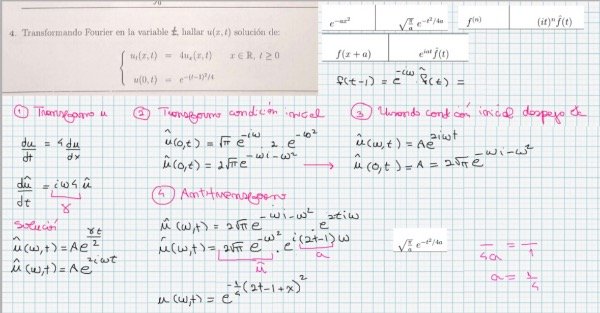 4. Transformando Fourier en la variable x, hallar u(x, t) solución de:
u_t(x, t) = 4u_x(x, t) x ∈ ℝ, t ≥ 0
u(0, t) = e^{-(t-1)^2/4}
e^{-ax^2} √(π/a) e^{-t^2/4a} f^{(n)} (it)^n f̂(t)
f(x + a) e^{iat} f̂(t)
f(t-1) = e^{-iω} · f̂(t) =
① Transformo u
du/dt = 4 du/dx
dû/dt = iω4 û
γ
Solución
û(ω,t) = A e^{γt/2}
û(ω,t) = A e^{2iωt}
② Transformo condición inicial
û(0,t) = √π e^{-iω} · 2 · e^{-ω^2}
û(0,t) = 2√π e^{-ωi-ω^2} →
③ Usando condición inicial despejo cte
û(ω,t) = A e^{2iωt}
û(0,t) = A = 2√π e^{-ωi-ω^2}
④ Antitransformo
û(ω,t) = 2√π e^{-ωi-ω^2} · e^{2tiω}
û(ω,t) = 2√π e^{-ω^2} · e^{i(2t-1)ω}
û a
u(ω,t) = e^{-1/4(2t-1+x)^2}
√(π/a) e^{-t^2/4a}
/4a = /1
a = 1/4